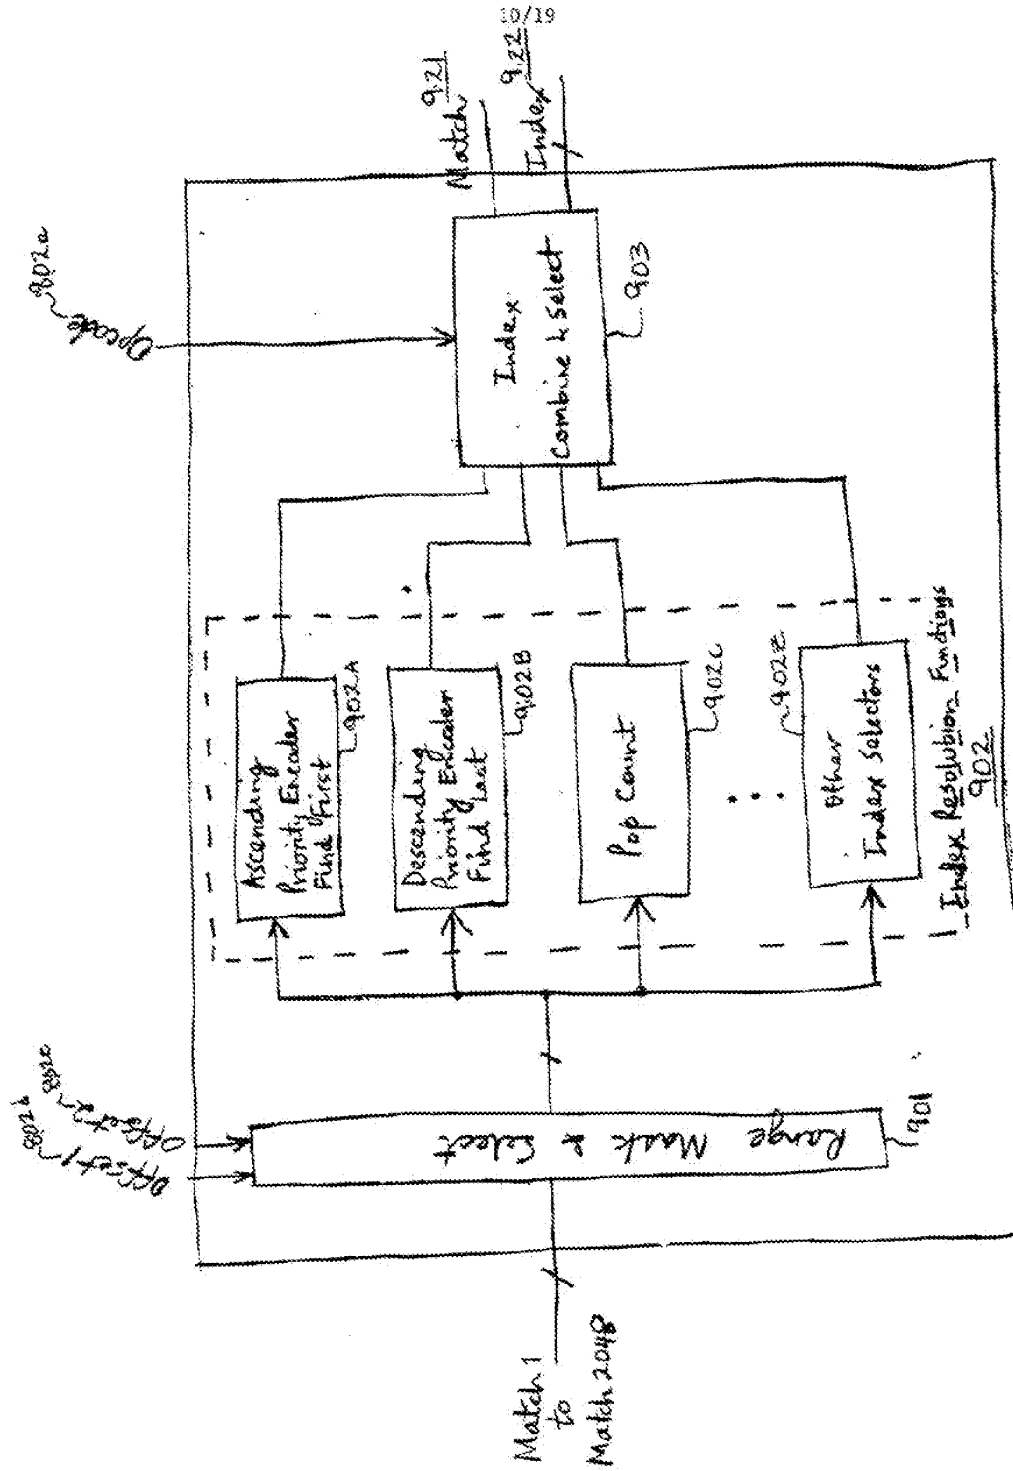 10/19
Match 1
to
Match 2048
Offset 1
802b
Offset 2
802c
Range Mask & Select
901
Ascending
Priority Encoder
Find First
902A
Descending
Priority Encoder
Find Last
902B
Pop Count
902C
Other
Index Selectors
902Z
Index Resolution Functions
902
Opcode
802a
Index
Combine & Select
903
Match
921
Index
922